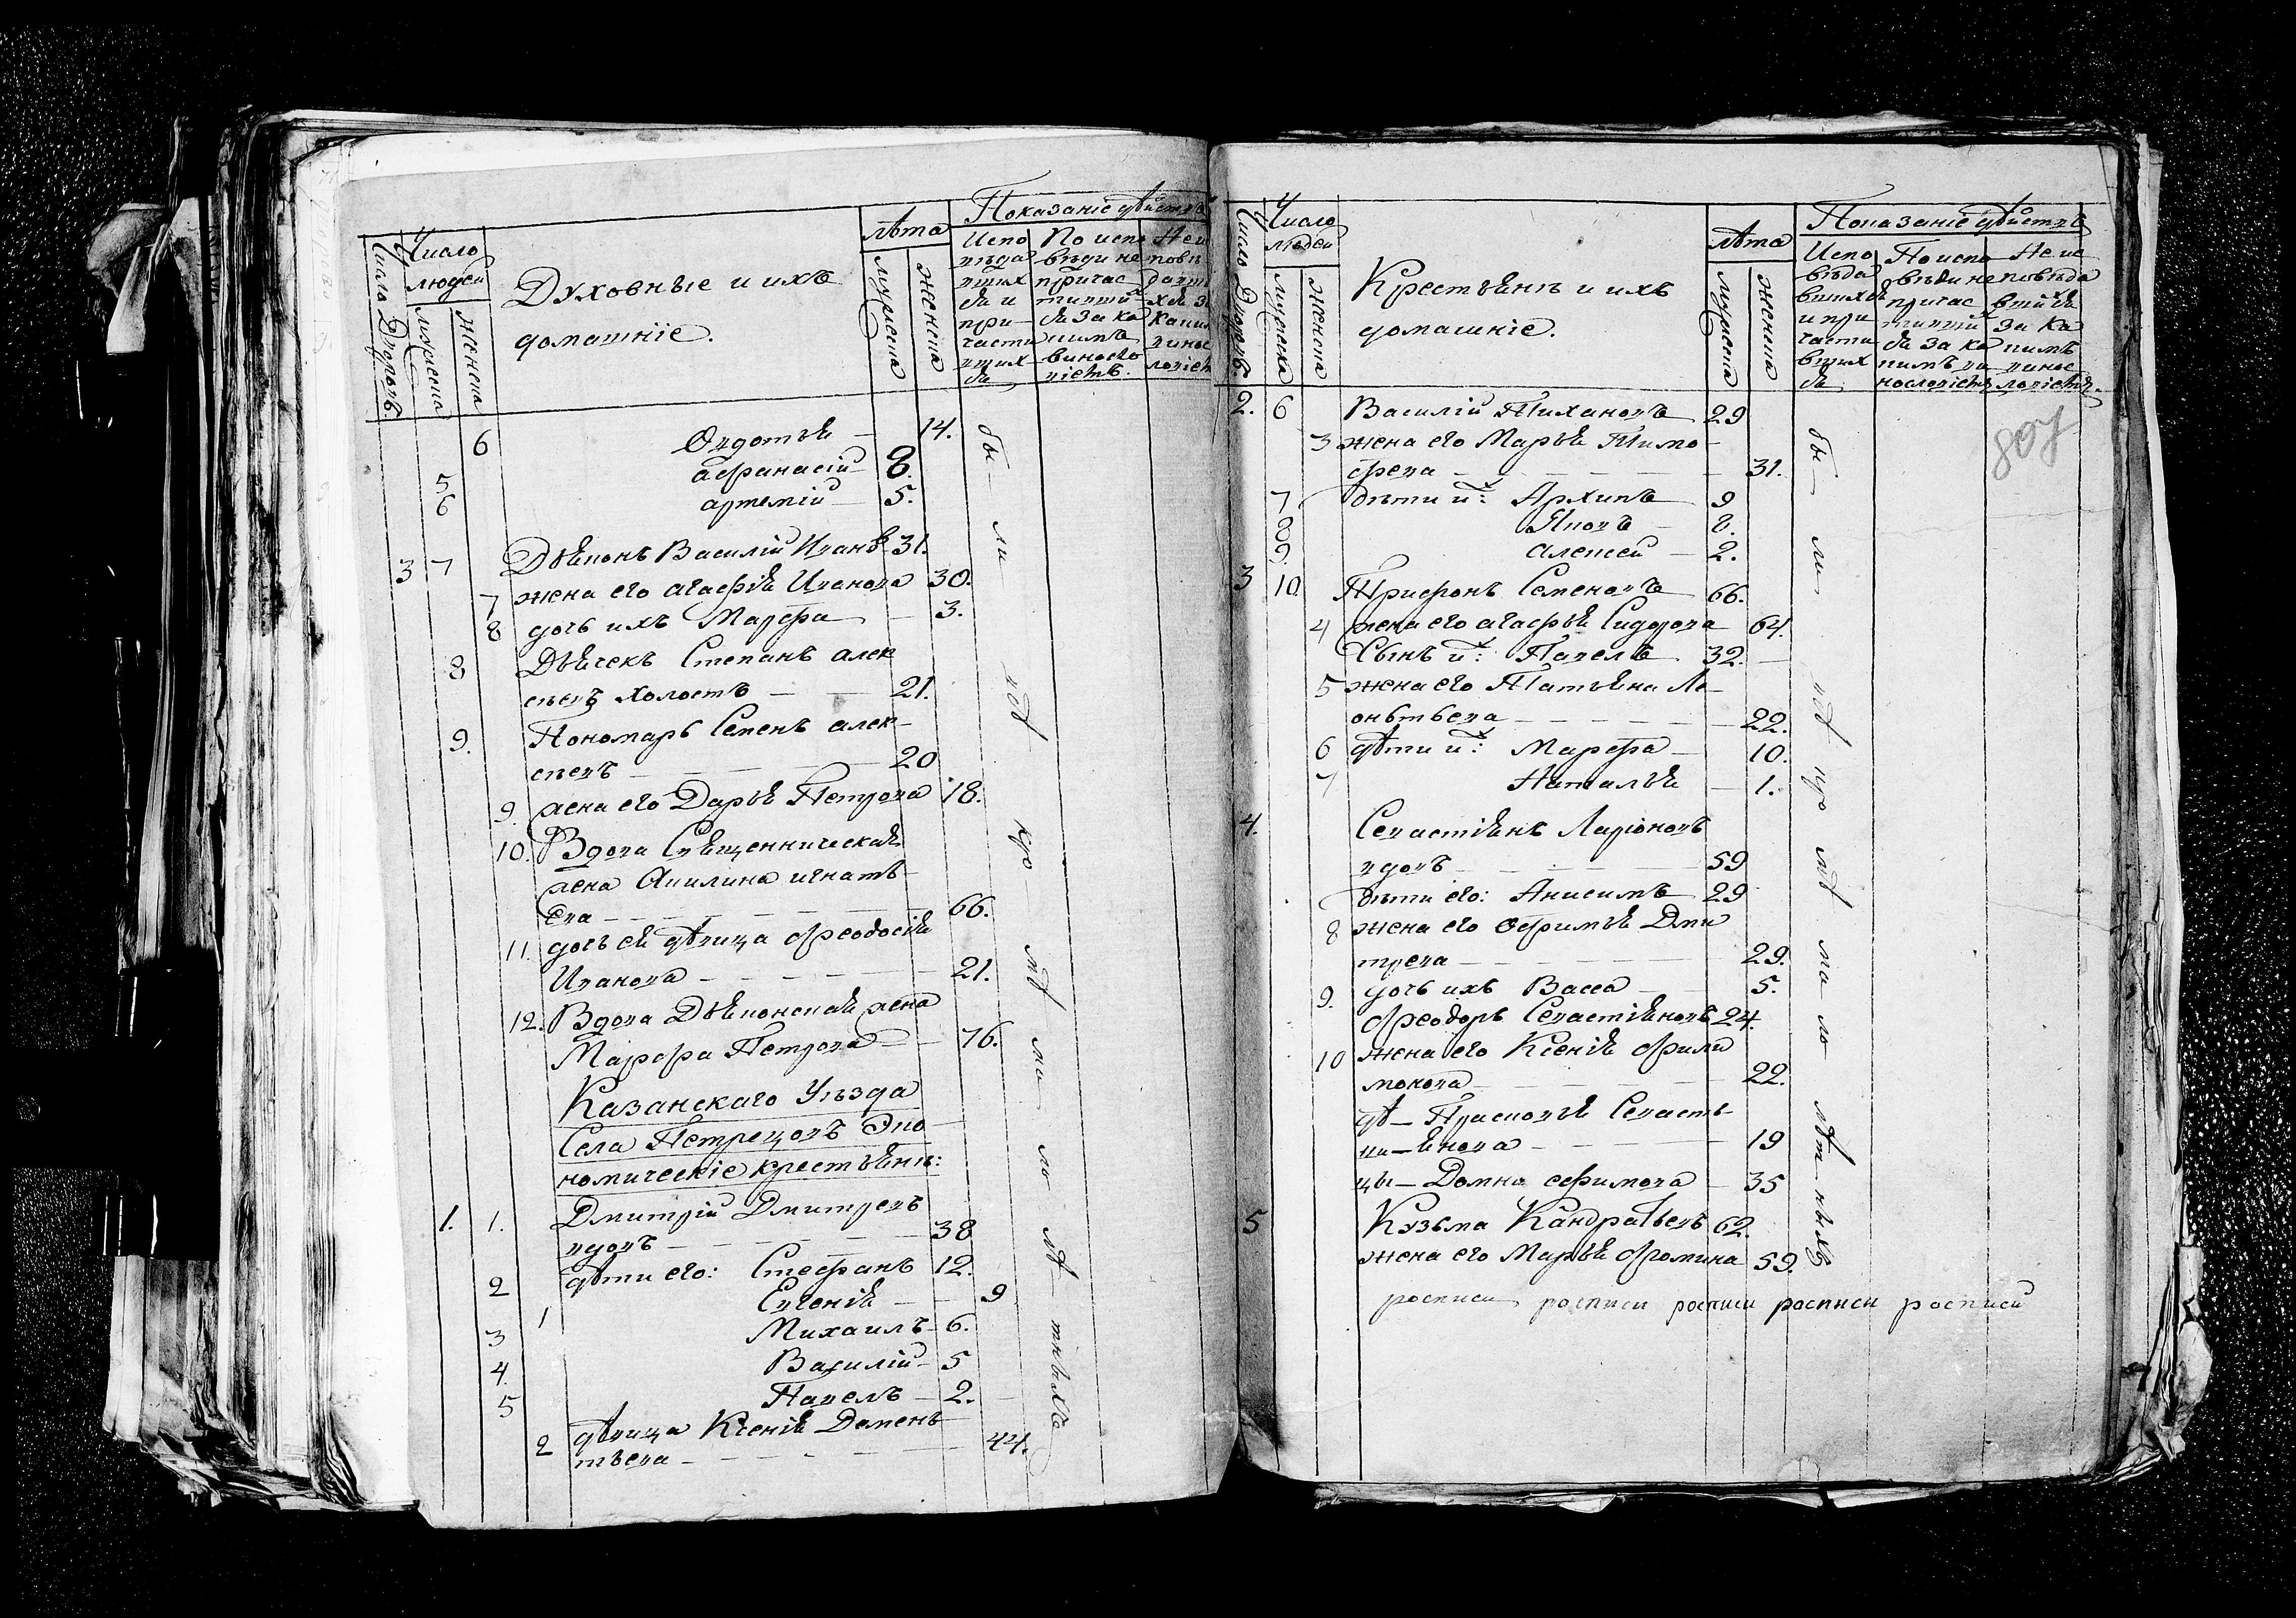 Число Дворовъ.
Число
людей
мужеска
женска
Духовные и ихъ
домашнїе.
лѣта
мужеска
женска
Показанїе дѣйствъ
Испо
вѣда
вших
ся и
при
части
вших
ся
По испо
вѣди не
причас
тивших
ся за ка
кимъ
винosло
вїемъ.
6 Овдотья — 14.
5 афанасїй — 8.
6 артемїй — 5.
3 7 Дьяконъ Василїй Иванов 31.
7 жена его агафїя Иванова 30.
8 дочь ихъ Марфа — 3.
8 Дьячекъ Степанъ алек
сѣевъ холостъ — 21.
9. Пономарь Семенъ алек-
сѣевъ — 20
9. жена его Дарья Петрова 18.
10. Вдова Священническая
жена Акилина игнать-
ева — 66.
11. дочь ея дѣвица Феодосїя
Иванова — 21.
12. Вдова Дьяконская жена
Марфа Петрова — 76.
Казанскаго Уѣзда
Села Петрецовъ Эко-
номическїе крестьянъ:
1. 1. Дмитрїй Дмитревъ
вдовъ — 38
2 дѣти его: Стефанъ 12.
1 Евгенїя — 9
3 Михаилъ 6.
4. Василїй 5
5 Павелъ — 2.
2 дѣвица Ксенїя Демень-
тьева — 44.
бы ли всѣ кро мѣ ма ло лѣ тныхъ
Число Дворовъ.
Число
людей
мужеска
женска
Крестьянъ и ихъ
домашнїе.
лѣта
мужеска
женска
Показанїе дѣйствъ
Испо
вѣда
вшихъ
и при
части
вших
ся
По испо
вѣди не
причас
тивший
ся за ка
кимъ ви
нословїемъ
Не ис
повѣда
вшїйся
за ка
кимъ
винос
ловїемъ.
807
2. 6 Василїй Тихановъ 29
3 жена его Марья Тимо-
феева — 31.
7 дѣти их: Архипъ 9
8 Яковъ — 8.
9. алексей — 2.
3 10 Трифонъ Семеновъ 66.
4 жена его агафья Сидорова 64.
Сынъ их: Павелъ 32.
5 жена его Татьяна Ле-
онтьева — 22.
6 дѣти их: Марфа — 10.
7 Наталья — 1.
4. Севастїянъ Ларїоновъ
вдовъ — 59
дѣти его: Анисимъ 29
8 жена его Офимья Дми
трева — 29.
9. дочь ихъ Васса — 5.
Феодоръ Севастїяновъ 24.
10 жена его Ксенїя Фили
монова — 22.
дѣ — Прасковья Севасть-
ви — янова — 19
цы — Домна ефимова — 35
5 Кузьма Кандратьевъ 62.
жена его Марья Фомина 59.
росписи росписи росписи росписи росписи
бы ли всѣ кро мѣ ма ло лѣт нихъ